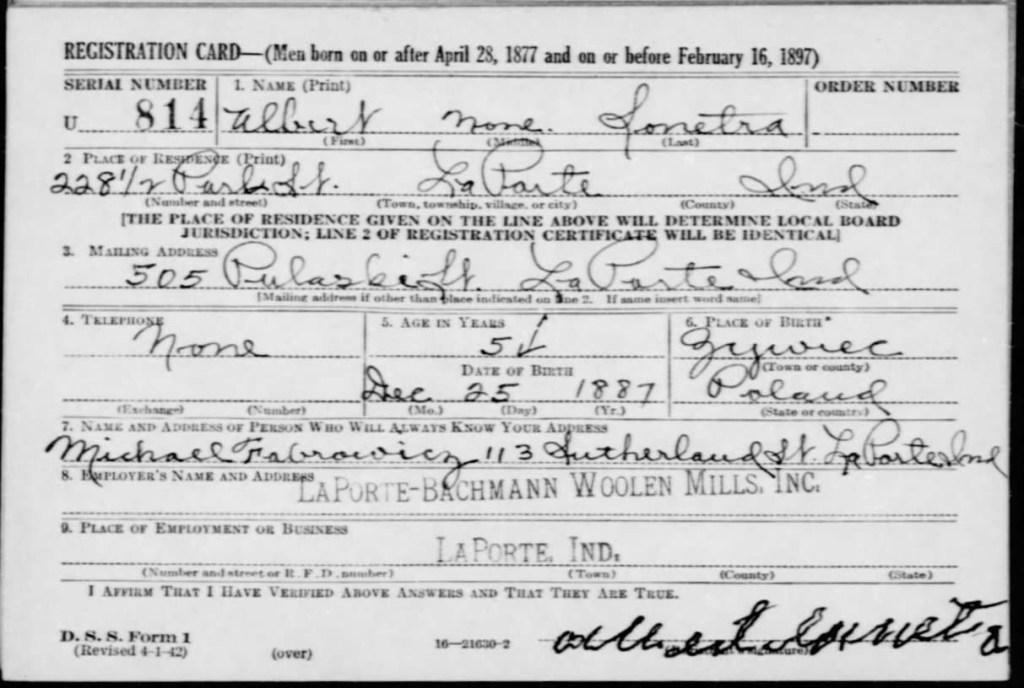 REGISTRATION CARD—(Men born on or after April 28, 1877 and on or before February 16, 1897)
SERIAL NUMBER 1. NAME (Print) ORDER NUMBER
U 814 Albert None. Sonetra
(First) (Middle) (Last)
2 PLACE OF RESIDENCE (Print)
228 1/2 Park St. LaPorte Ind
(Number and street) (Town, township, village, or city) (County) (State)
[THE PLACE OF RESIDENCE GIVEN ON THE LINE ABOVE WILL DETERMINE LOCAL BOARD
JURISDICTION; LINE 2 OF REGISTRATION CERTIFICATE WILL BE IDENTICAL]
3. MAILING ADDRESS
505 Pulaski St. LaPorte Ind
[Mailing address if other than place indicated on line 2. If same insert word same]
4. TELEPHONE 5. AGE IN YEARS 6. PLACE OF BIRTH
None 5 Zywiec
(Town or county)
DATE OF BIRTH
Dec 25 1887 Poland
(Exchange) (Number) (Mo.) (Day) (Yr.) (State or country)
7. NAME AND ADDRESS OF PERSON WHO WILL ALWAYS KNOW YOUR ADDRESS
Michael Fabrowicz 113 Sutherland St. LaPorte Ind
8. EMPLOYER'S NAME AND ADDRESS
LAPORTE-BACHMANN WOOLEN MILLS, INC.
9. PLACE OF EMPLOYMENT OR BUSINESS
LAPORTE, IND.
(Number and street or R. F. D. number) (Town) (County) (State)
I AFFIRM THAT I HAVE VERIFIED ABOVE ANSWERS AND THAT THEY ARE TRUE.
D. S. S. Form 1
(Revised 4-1-42) (over) 16—21630-2 Albert Sonetra